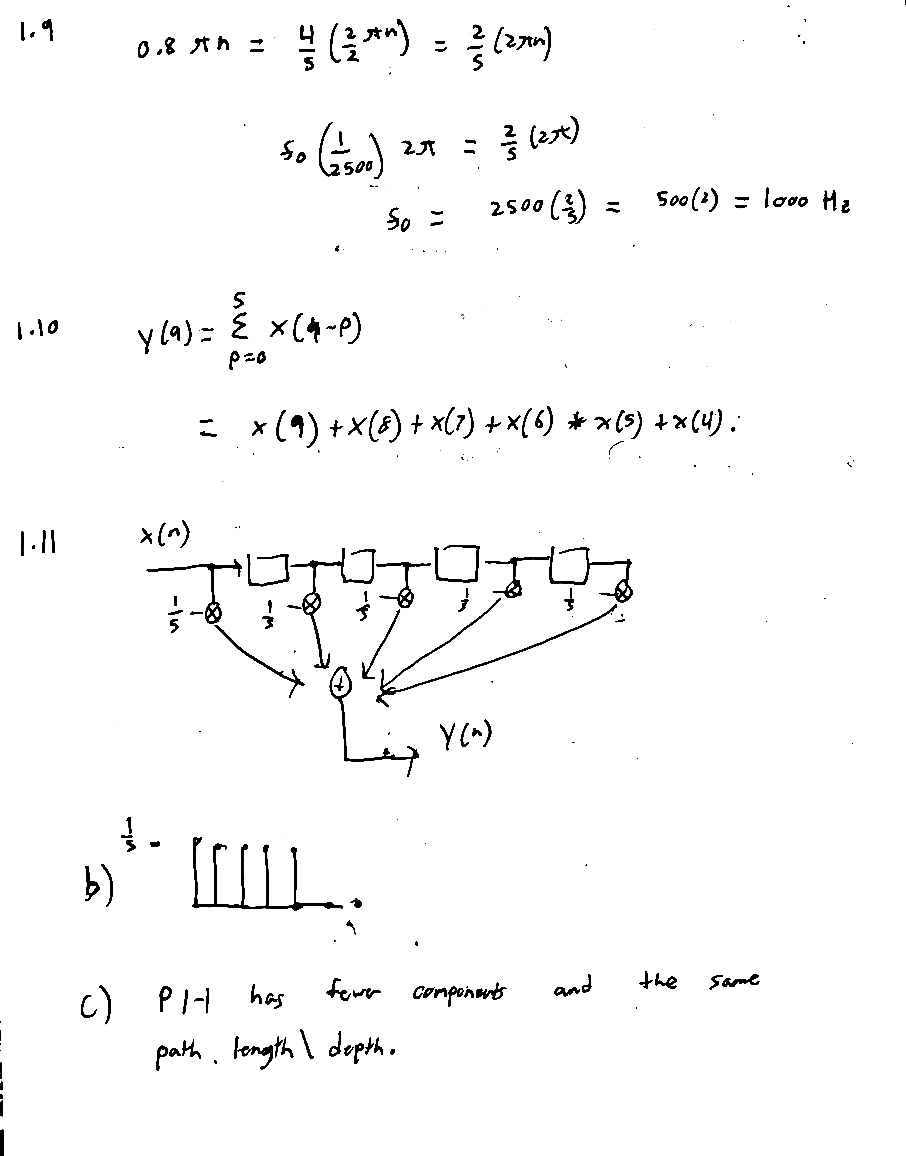 1.9
0.8 πn = 4/5 (2/2 πn) = 2/5 (2πn)
f0 (1/2500) 2π = 2/5 (2π)
f0 = 2500 (2/5) = 500(2) = 1000 Hz
1.10
y(9) = Σ_{p=0}^{5} x(9-p)
= x(9) + x(8) + x(7) + x(6) + x(5) + x(4).
1.11
x(n)
1/5 1/5 1/5 1/5 1/5
+
y(n)
b) 1/5
c) P1-1 has fewer components and the same
path. length \ depth.